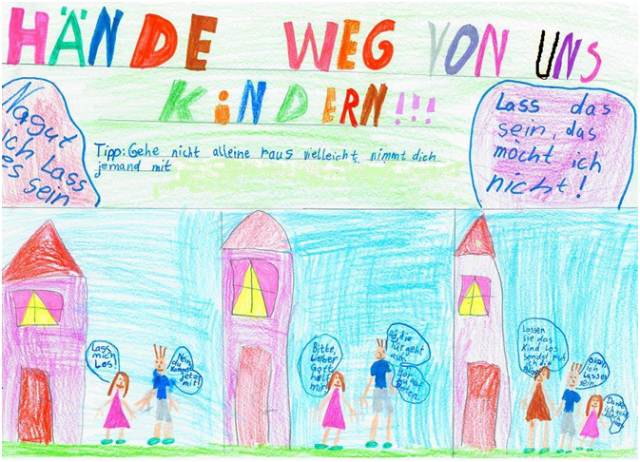 HÄNDE WEG VON UNS
KINDERN!!!
Nagut
ich Lass
es sein
Tipp: Gehe nicht alleine raus vielleicht nimmt dich
jemand mit
Lass das
sein, das
möcht ich
nicht!
Lass
mich
Los!
Nein,
du kommst
jetzt
mit!
Bitte,
lieber
Gott
mir!
die
geht
Lassen
sie das
Kind los
sonst ruf
ich die
ich
lasse
sein